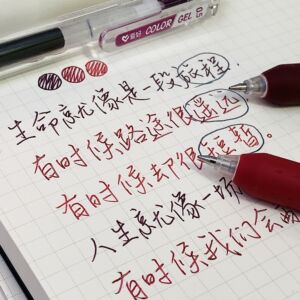 爱好 COLOR GEL 0.5
生命就像是一段旅程.
有时候路途很遥远
有时候却很短暂。
人生就像一场
有时候我们会